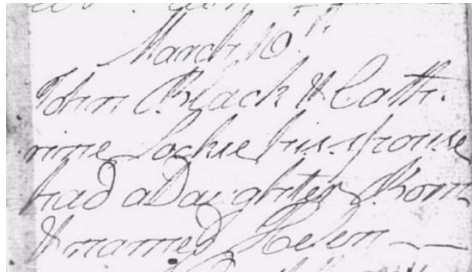 March 10th
John Black & Cath-
rine Lockie his spouse
had a Daughter Born
& named Helen